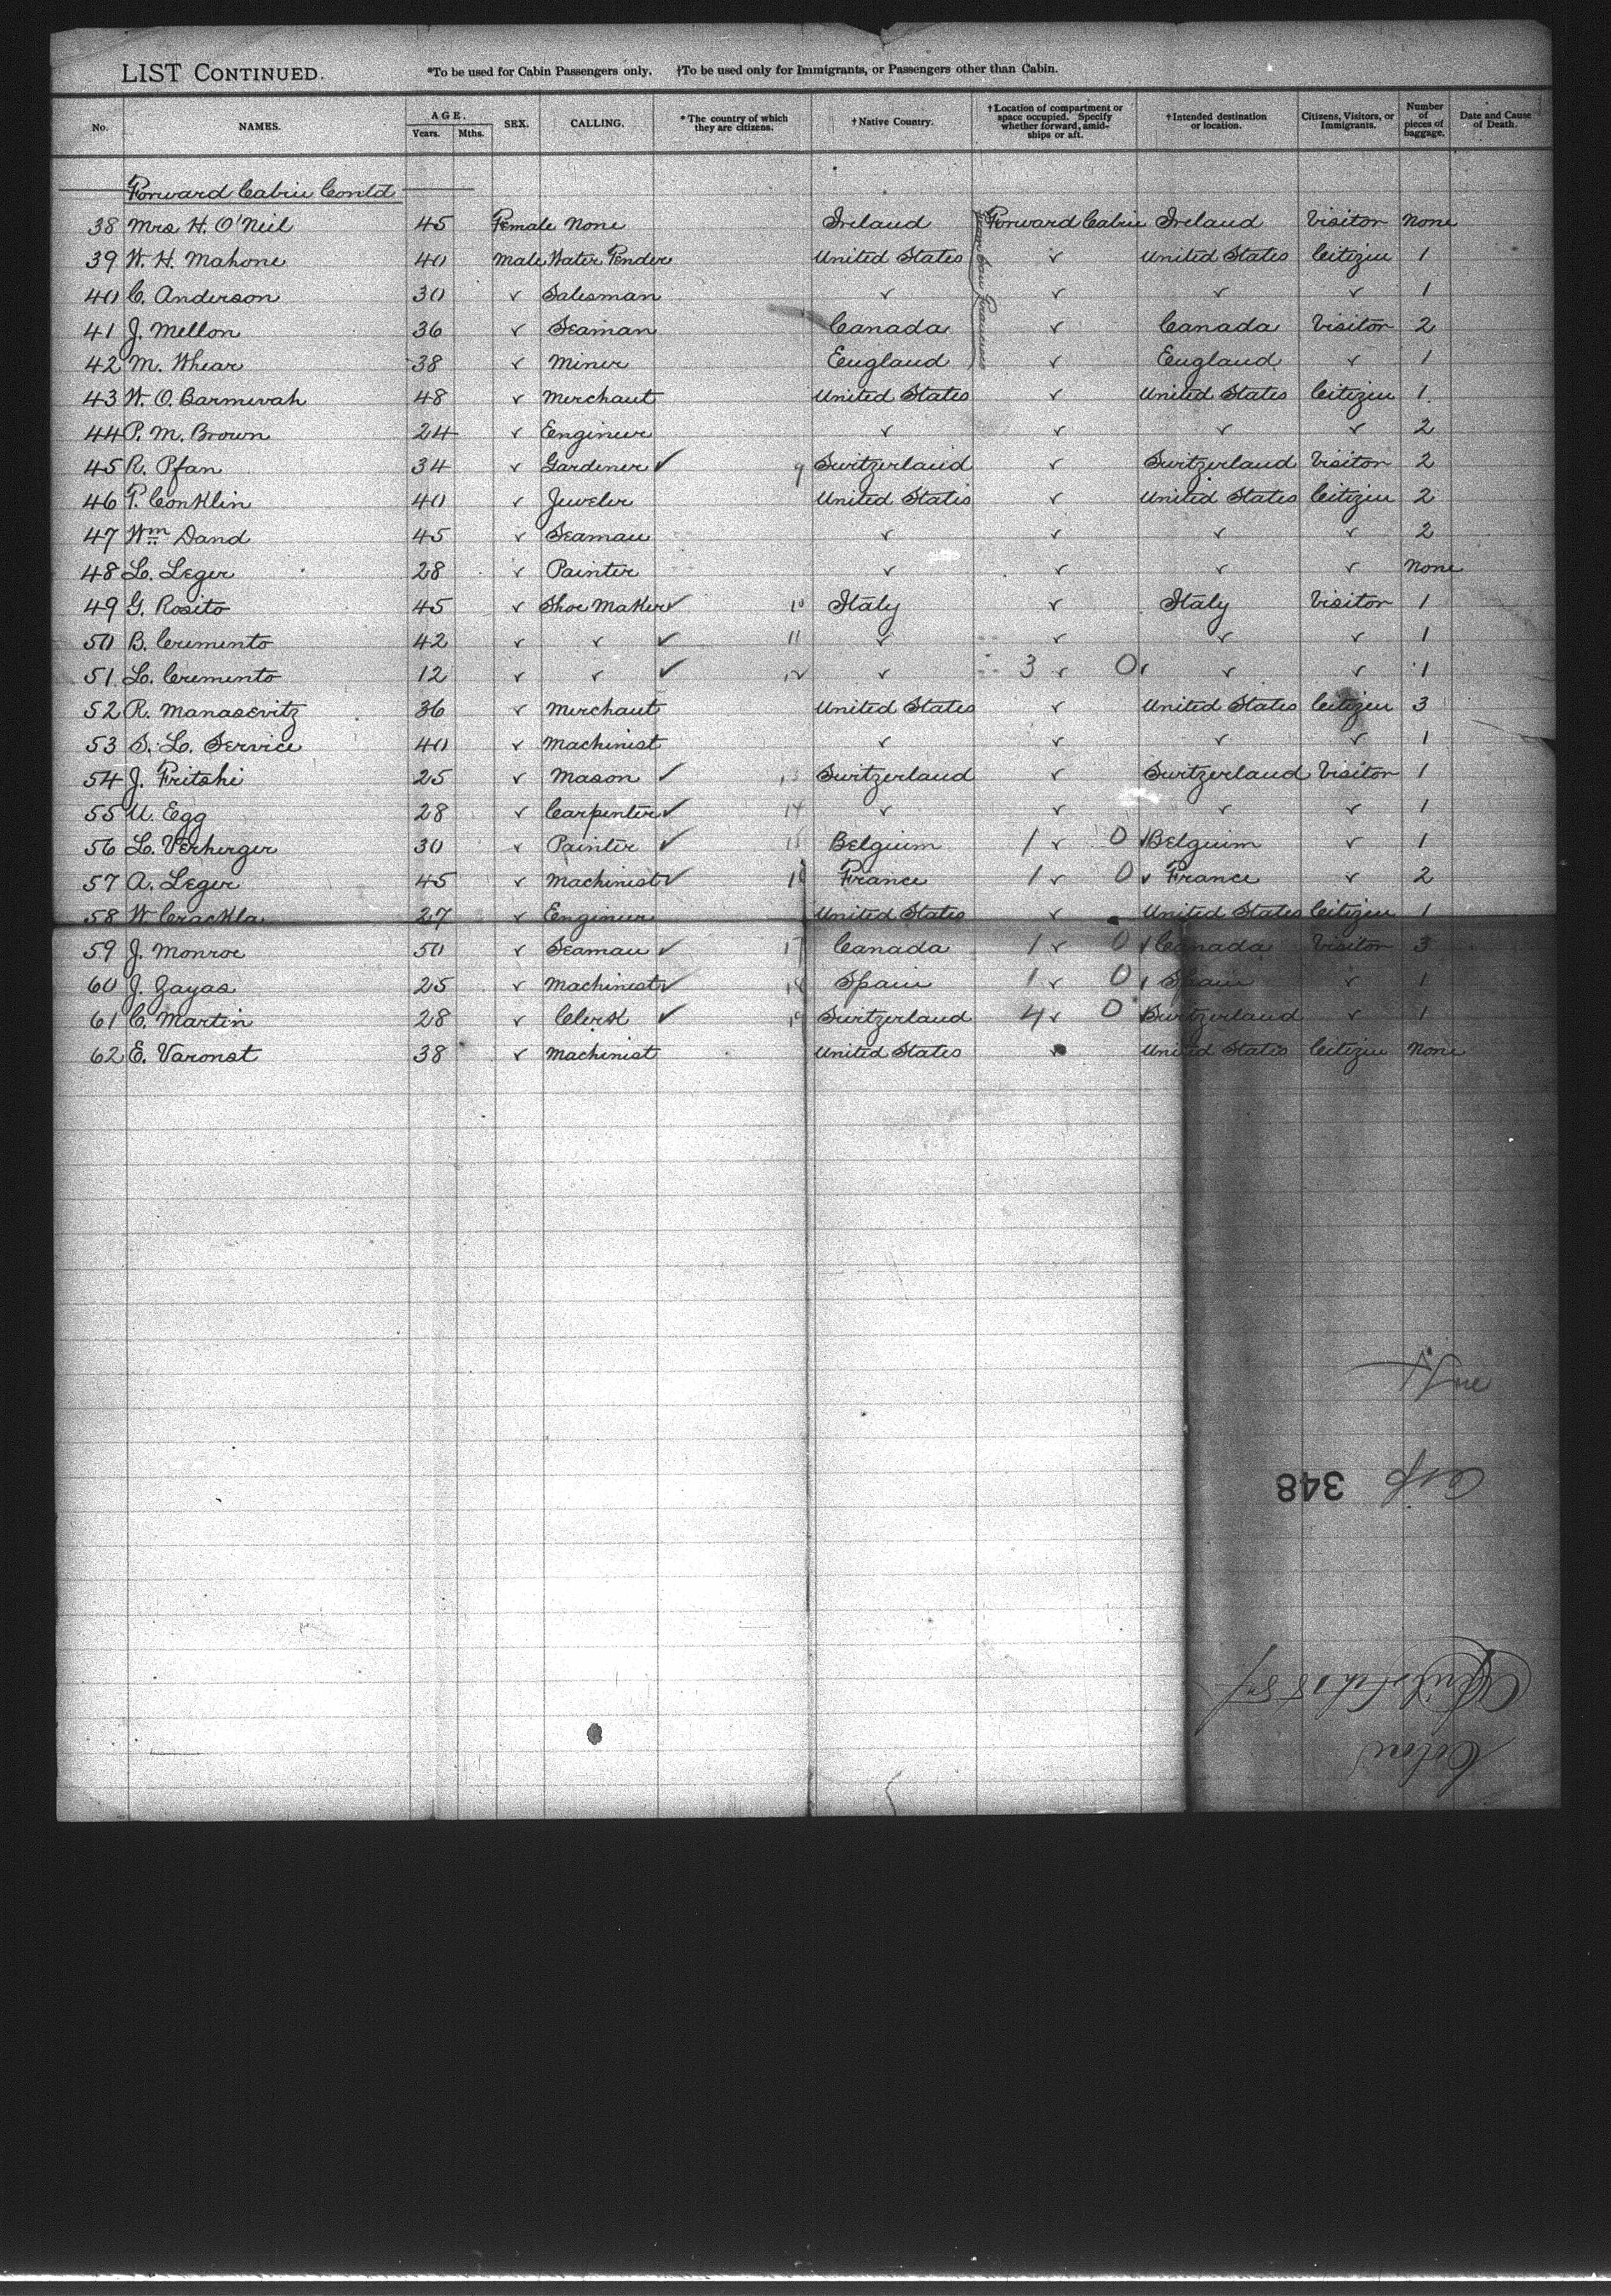 LIST CONTINUED. *To be used for Cabin Passengers only. †To be used only for Immigrants, or Passengers other than Cabin.
No. NAMES. AGE. Years. Mths. SEX. CALLING. * The country of which they are citizens. † Native Country. † Location of compartment or space occupied. Specify whether forward, amidships or aft. † Intended destination or location. Citizens, Visitors, or Immigrants. Number of pieces of baggage. Date and Cause of Death.
Forward Cabin Contd
38 Mrs H. O'Neil 45 Female None Ireland Forward Cabin Ireland Visitor None
39 W. H. Mahone 40 Male Water Tender United States ✓ United States Citizen 1
40 C. Anderson 30 ✓ Salesman ✓ ✓ ✓ ✓ 1
41 J. Mellon 36 ✓ Seaman Canada ✓ Canada Visitor 2
42 M. Whear 38 ✓ Miner England ✓ England ✓ 1
43 W. O. Barmevah 48 ✓ Merchant United States ✓ United States Citizen 1
44 P. M. Brown 24 ✓ Engineer ✓ ✓ ✓ ✓ 2
45 R. Pfan 34 ✓ Gardener ✓ 9 Switzerland ✓ Switzerland Visitor 2
46 P. Conklin 40 ✓ Jeweler United States ✓ United States Citizen 2
47 Wm Dand 45 ✓ Seaman ✓ ✓ ✓ ✓ 2
48 L. Leger 28 ✓ Painter ✓ ✓ ✓ ✓ None
49 G. Rosito 45 ✓ Shoe Maker ✓ 10 Italy ✓ Italy Visitor 1
50 B. Cremento 42 ✓ ✓ ✓ 11 ✓ ✓ ✓ ✓ 1
51 L. Cremento 12 ✓ ✓ ✓ 12 ✓ 3 ✓ 0 ✓ ✓ 1
52 R. Manasevitz 36 ✓ Merchant United States ✓ United States Citizen 3
53 S. L. Service 40 ✓ Machinist ✓ ✓ ✓ ✓ 1
54 J. Fritshi 25 ✓ Mason ✓ 13 Switzerland ✓ Switzerland Visitor 1
55 U. Egg 28 ✓ Carpenter ✓ 14 ✓ ✓ ✓ ✓ 1
56 L. Verherger 30 ✓ Painter ✓ 15 Belguim 1 ✓ 0 Belguim ✓ 1
57 A. Leger 45 ✓ Machinist ✓ 16 France 1 ✓ 0 France ✓ 2
58 W Crackla 27 ✓ Engineer United States ✓ United States Citizen 1
59 J. Monroe 50 ✓ Seaman ✓ 17 Canada 1 ✓ 0 Canada Visitor 3
60 J. Zayas 25 ✓ Machinist ✓ 18 Spain 1 ✓ 0 Spain ✓ 1
61 C. Martin 28 ✓ Clerk ✓ 19 Switzerland 4 ✓ 0 Switzerland ✓ 1
62 E. Varonst 38 ✓ Machinist United States ✓ United States Citizen None
348
Colon